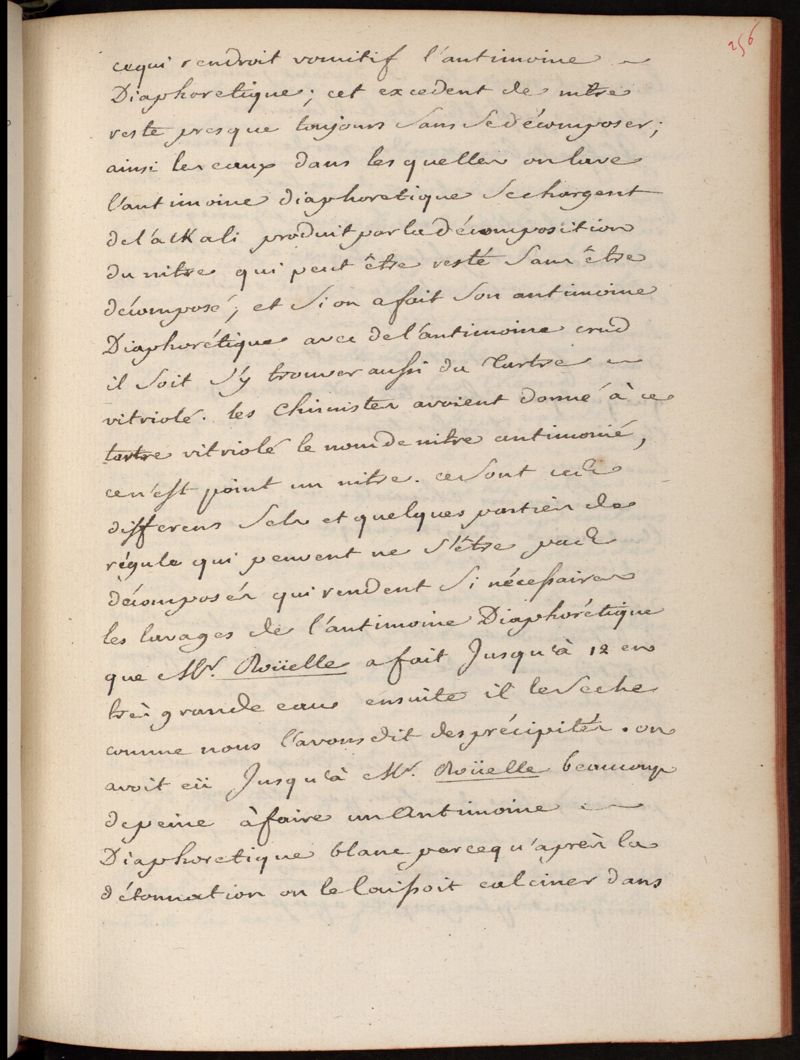 256
cequi rendroit vomitif l'antimoine
Diaphoretique; cet excedent de nitre
reste presque toujours sans se décomposer;
ainsi les eaux dans lesquelles on lave
l'antimoine diaphoretique se chargent
de l'alkali produit par la décomposition
du nitre qui peut être resté sans être
décomposé, et si on a fait son antimoine
Diaphorétique avec de l'antimoine crud
il doit s'y trouver aussi du Tartre
vitriolé. les Chimistes avoient donné à ce
tartre vitriolé le nom de nitre antimonié,
ce n'est point un nitre. ce sont ces
differens sels et quelques parties de
régule qui peuvent ne s'être pas
décomposés qui rendent si nécessaires
les lavages de l'antimoine Diaphorétique
que Mr. Roüelle a fait Jusqu'à 12 en
très grande eau ensuite il le seche
comme nous l'avons dit des précipités. on
avoit eü Jusqu'à Mr. Roüelle beaucoup
de peine à faire un Antimoine
Diaphoretique blanc parcequ'après la
détonnation on le laissoit calciner dans